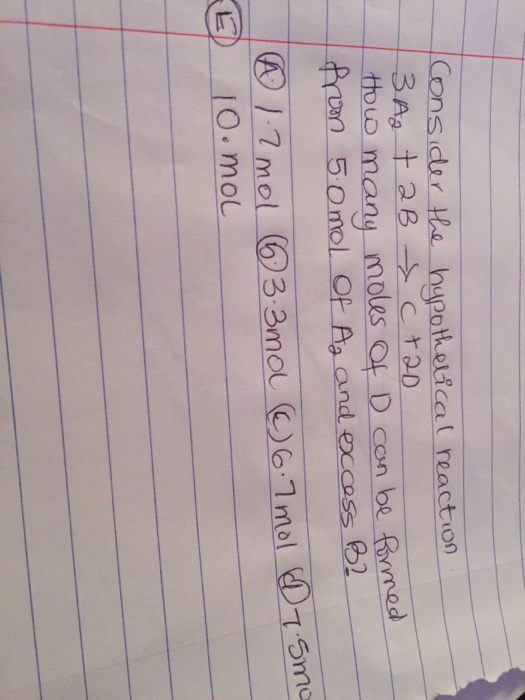 Consider the hypothetical reaction.
3A₂ + 2B → C + 2D
How many moles of D can be formed
from 5.0mol of A₂ and excess B?
(A) 1.7 mol (b) 3.3mol (c) 6.7 mol (d) 7.5mo
(E) 10.mol